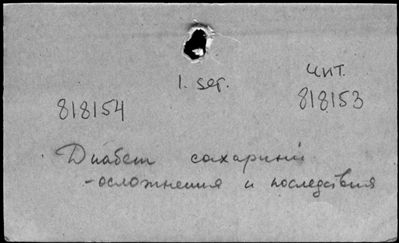 1. ser.
чит.
818154
818153
Диабет сахарный
- осложнения и последствия